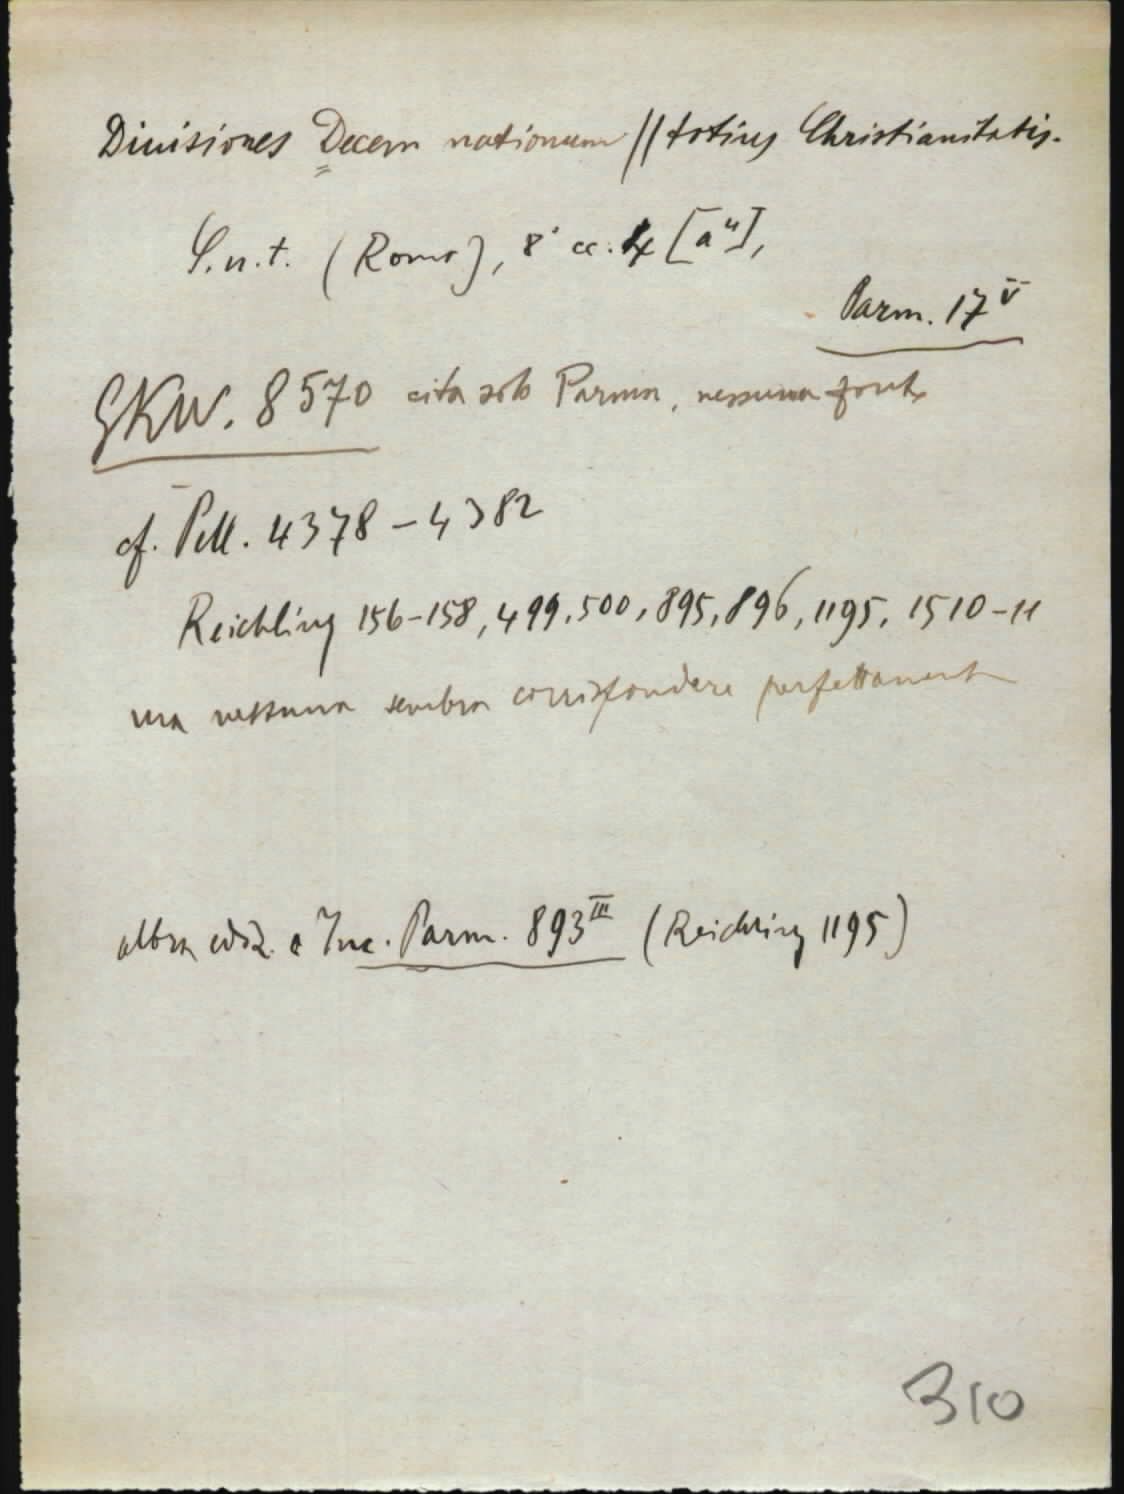 Diuisiones Decem nationum || totius Christianitatis.
S.n.t. (Roma), 8° cc. 4 [a⁴],
Parm. 17ⱽ
GKW. 8570 cita solo Parma, nessuna fonte
cf. Pell. 4378-4382
Reichling 156-158, 499, 500, 895, 896, 1195, 1510-11
ma nessuna sembra corrispondere perfettamente
altra ediz. è Inc. Parm. 893ᴵᴵᴵ (Reichling 1195)
310